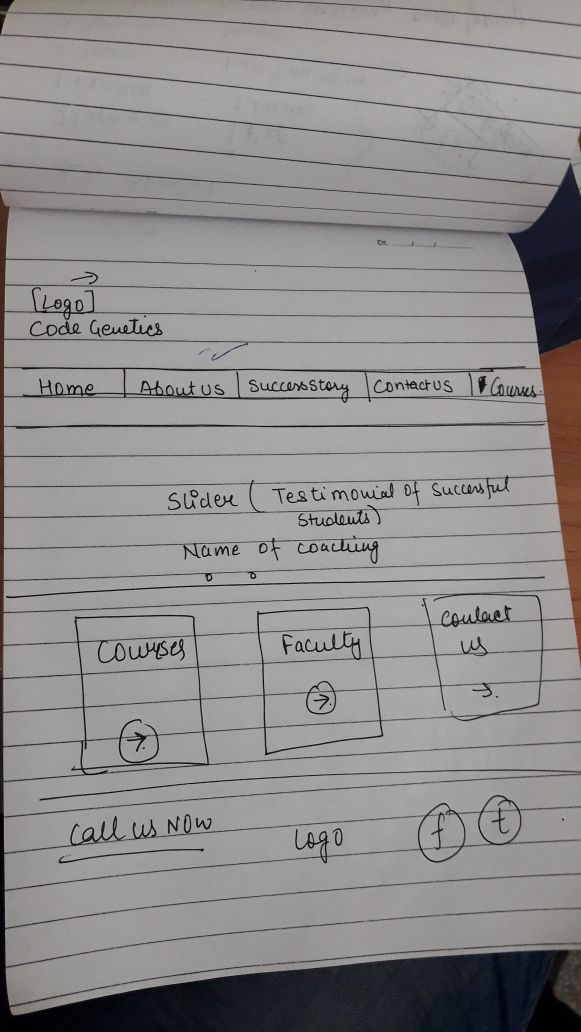 [Logo]
Code Genetics
Home About us Success Story Contact us Courses.
Slider (Testimonial of Successful
Students)
Name of coaching
Courses
Faculty
Contact
us
Call us Now
Logo
f t